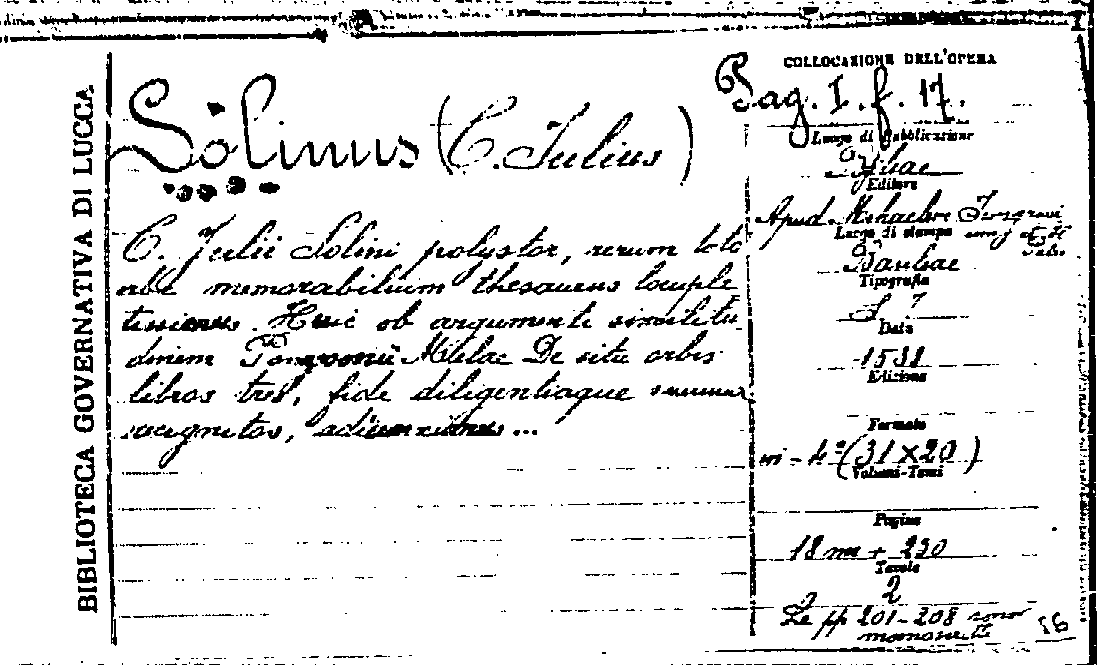 BIBLIOTECA GOVERNATIVA DI LUCCA
Solinus (C. Julius)
C. Julii Solini polystor, rerum toto
orbe memorabilium thesaurus locuple
tissimus. Huic ob argumenti similitu
dinem Pomponii Melae De situ orbis
libros tres, fide diligentiaque summa
recognitos, adiunximus...
COLLOCAZIONE DELL'OPERA
Pag. I. f. 17.
Luogo di pubblicazione
Editore
Apud Michaelem
Luogo di stampa
Basileae
Tipografia
Data
1538
Edizione
Formato
in-4º (31×20)
Volumi-Tomi
Pagine
18 nn + 230
Tavole
2
Le pp 201-208 sono
16